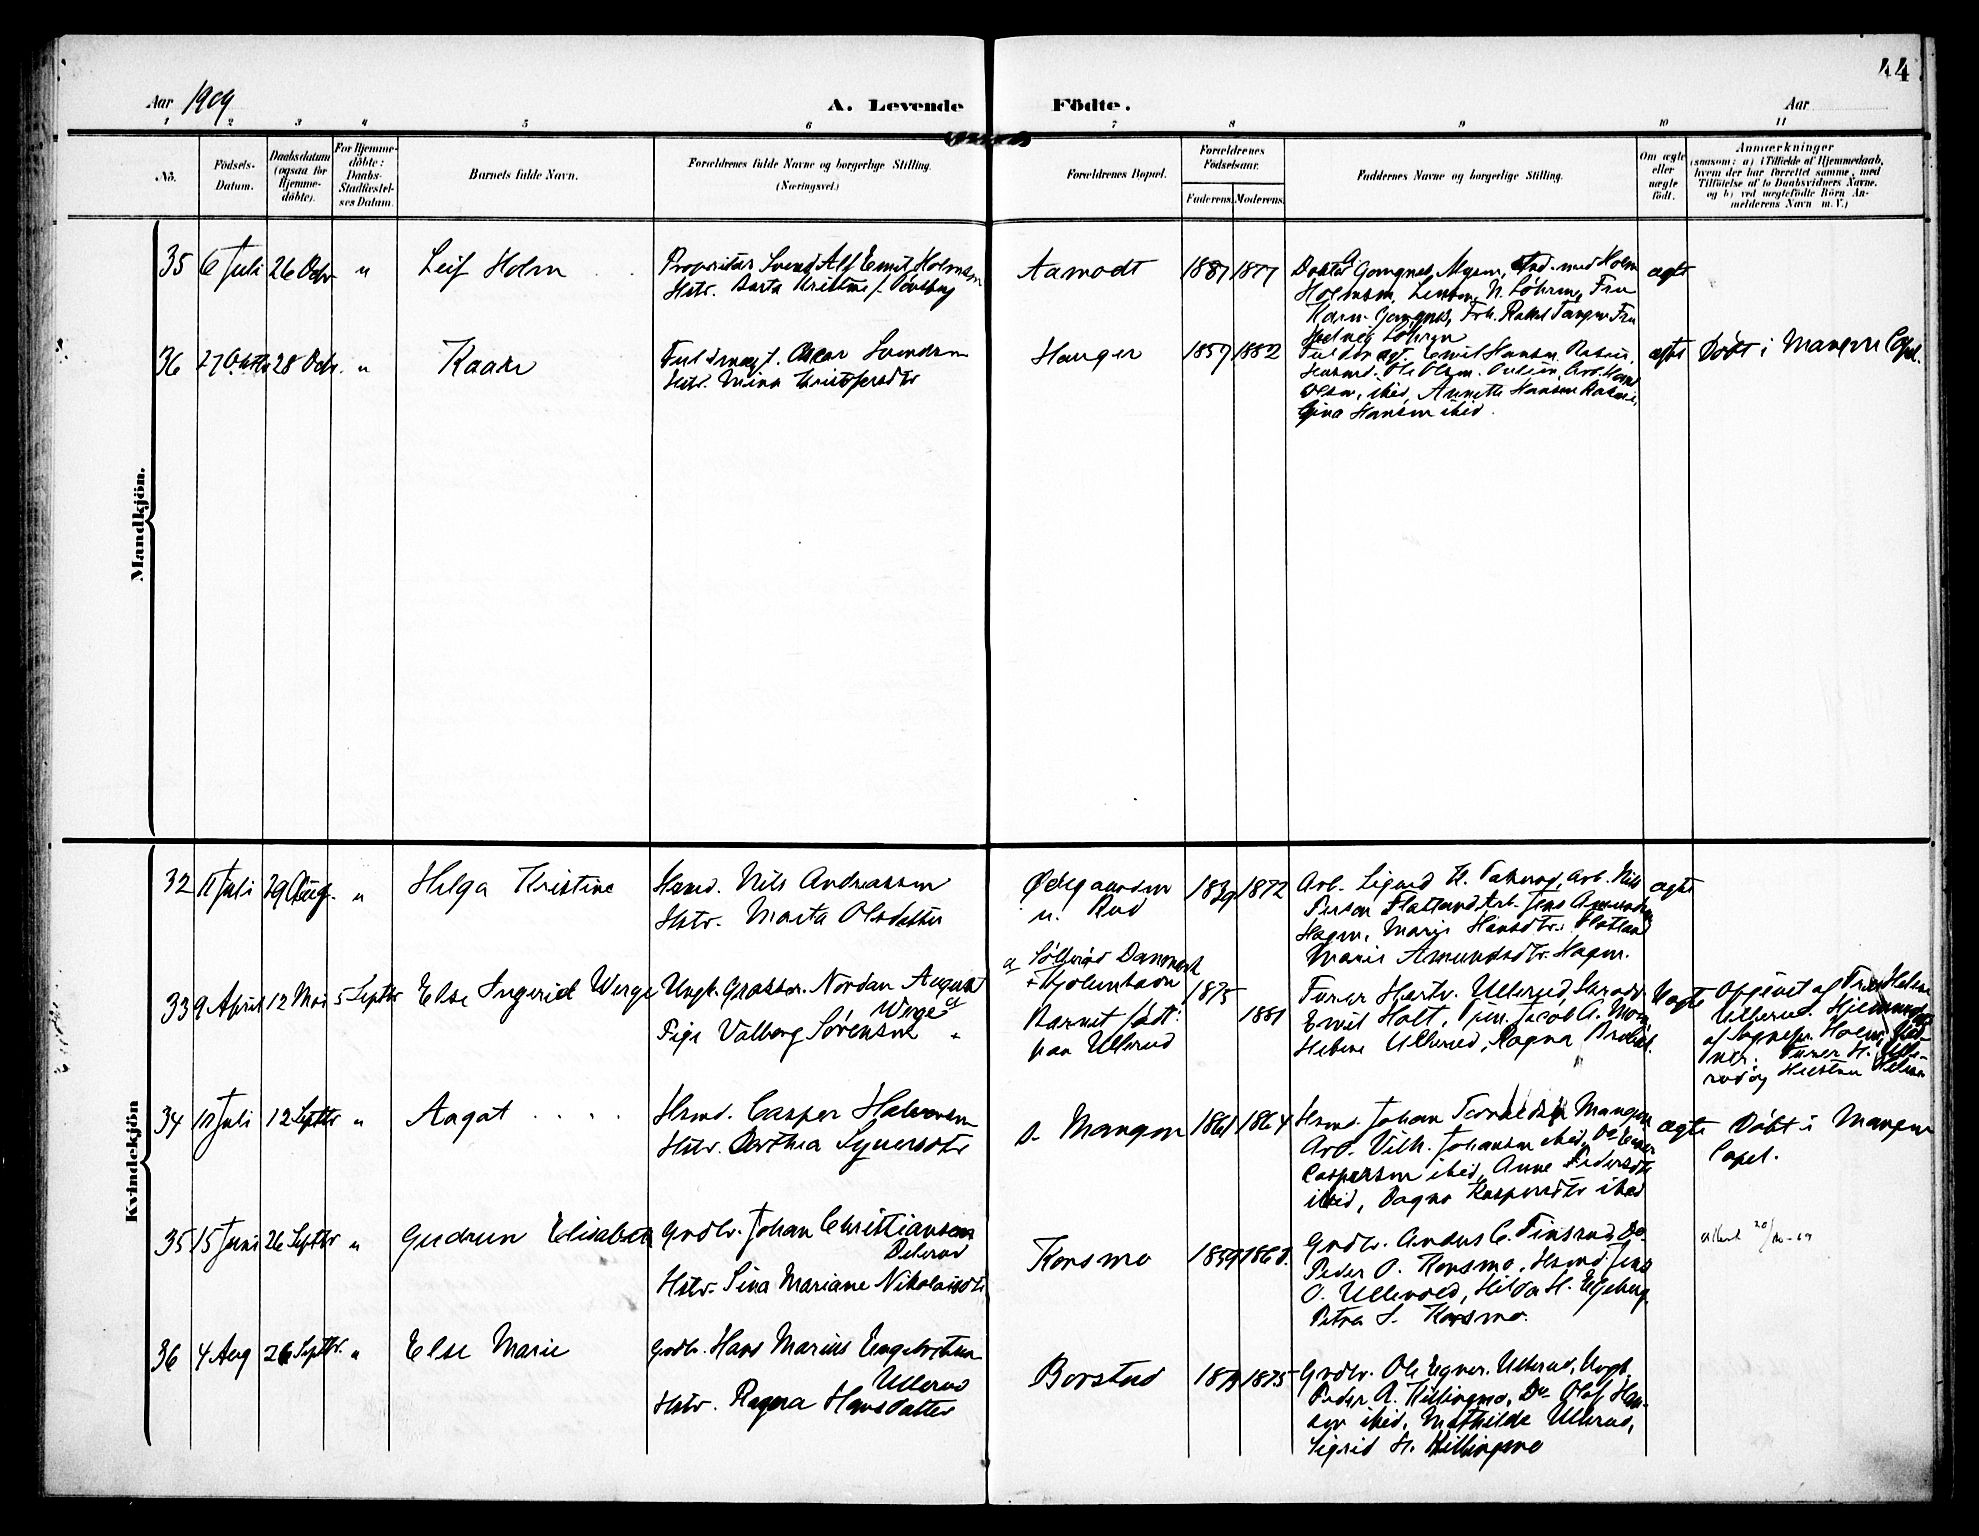 44
Aar 1909
A. Levende Födte.
Aar
1 2 3 4 5 6 7 8 9 10 11
No.
Födsels-Datum.
Daabsdatum (ogsaa for Hjemme-döbte).
For Hjemme-döbte: Daabs-Stadfæstel-ses Datum.
Barnets fulde Navn.
Forældrenes fulde Navne og borgerlige Stilling. (Næringsvei.)
Forældrenes Bopæl.
Forældrenes Födselsaar.
Faderens. Moderens.
Faddernes Navne og borgerlige Stilling.
Om ægte eller uægte født.
Anmærkninger
(saasom: a) i Tilfælde af Hjemmedaab,
hvem der har forrettet samme, med
Tilföielse af to Daabsvidners Navne,
og b) ved uægtefödte Börn An-
melderens Navn m. V.)
Mandkjön.
35 6 Juli 26 Octr " Leif Holm
Proprietær Svend Alf Emil Holmsen
Hstr. Marta Kristine
Aamodt 1887 1877
Doktor Gangnes, Mysen, Holm
Holmsen,
Karen Gangnes, Fru
ægte
36 27 28 Octr. " Kaare
Oscar Svendsen
Hstr. Mina Kristofersdtr
Hanger 1857 1882
Emil Hansen
Husmd. Ole Olsen
Olsen, ibid, Annette Hansen
Gina Hansen ibid.
ægte Døbt i Mangen Capel.
Kvindekjön
32 11 Juli 29 Aug. " Helga Kristine
Hsmd. Nils Andreassen
Hstr. Marta Olsdatter
Ødegaarden u. Rud 1839 1872
Arb. Sigurd H. Arb. Nils
Person Flatland, Arb. Jens Amundsen
Hagen, Marie Hansdtr. Flatland
Marie Amundsdtr. Hagen.
ægte
33 9 April 12 Mai 5 Septbr Else Ingerid Werge
Ungk. Grosser. Nordan August
Werge og
Pige Valborg Sørensen "
a Søllerød Danmark
i Kjøbenhavn
Barnet født:
paa Ullerud
1875 1881
Hartv. Ullerud,
Emil Holt, Jacob A. Moen
Helene Ullerud, Ragna
Uægte Opgivet af Fru Helene
Ullerud. Hjemmedøbt
af Sognepr. Holm,
H. Ulle-
rud og Hustru Helene
34 11 Juli 12 Septbr " Aagot
Hsmd. Casper Halvorsen
Hstr. Berthea Syversdtr
s. Mangen 1861 1864
Hsmd. Johan Mangen
Arb. Vilh. Johansen ibid, Do Einar
Caspersen ibid, Anne Pedersdtr
ibid, Dagny Kaspersdtr ibid
ægte Døbt i Mangen
Capel.
35 15 Juni 26 Septbr " Gudrun Elisabeth
Grdbr. Johan Christiansen
Hstr. Lina Mariane Nikolaisdtr
Korsmo 1859 1860.
Grdbr. Anders C. Finsrud, Do
Peder O. Korsmo, Hsmd. Jens
O. Ullevold, Hilda H. Eljeberg,
Petra S. Korsmo.
36 4 Aug 26 Septbr. " Else Marie
Grdbr. Hans Marius Engebretsen
Ullerud
Hstr. Ragna Hansdatter
Borstad 1875
Grdbr. Ole Egner. Ullerud, Ungk.
Peder A. Killingmo, Do Olaf Han-
sen ibid, Mathilde Ullerud,
Sigrid H. Killingmo